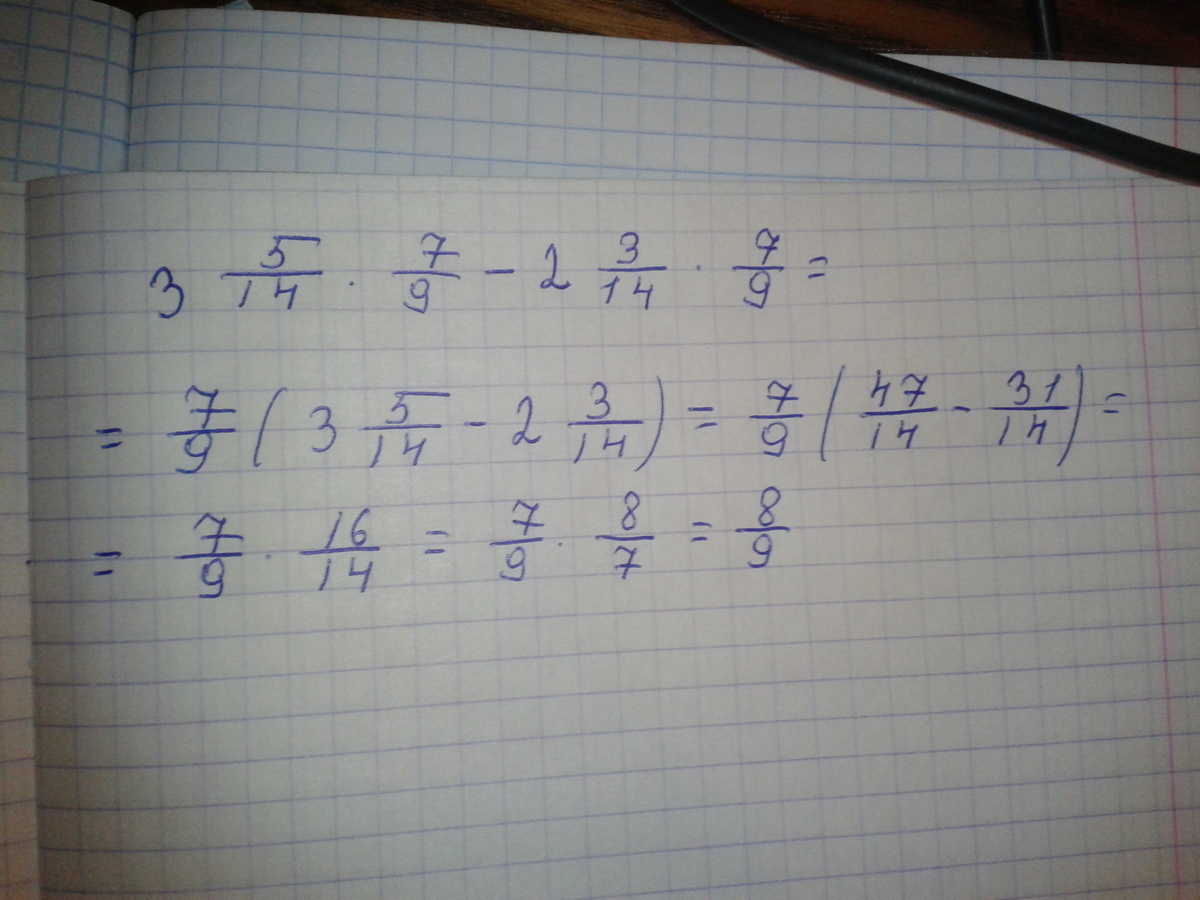 3 5/14 · 7/9 - 2 3/14 · 7/9 =
= 7/9 ( 3 5/14 - 2 3/14 ) = 7/9 ( 47/14 - 31/14 ) =
= 7/9 · 16/14 = 7/9 · 8/7 = 8/9